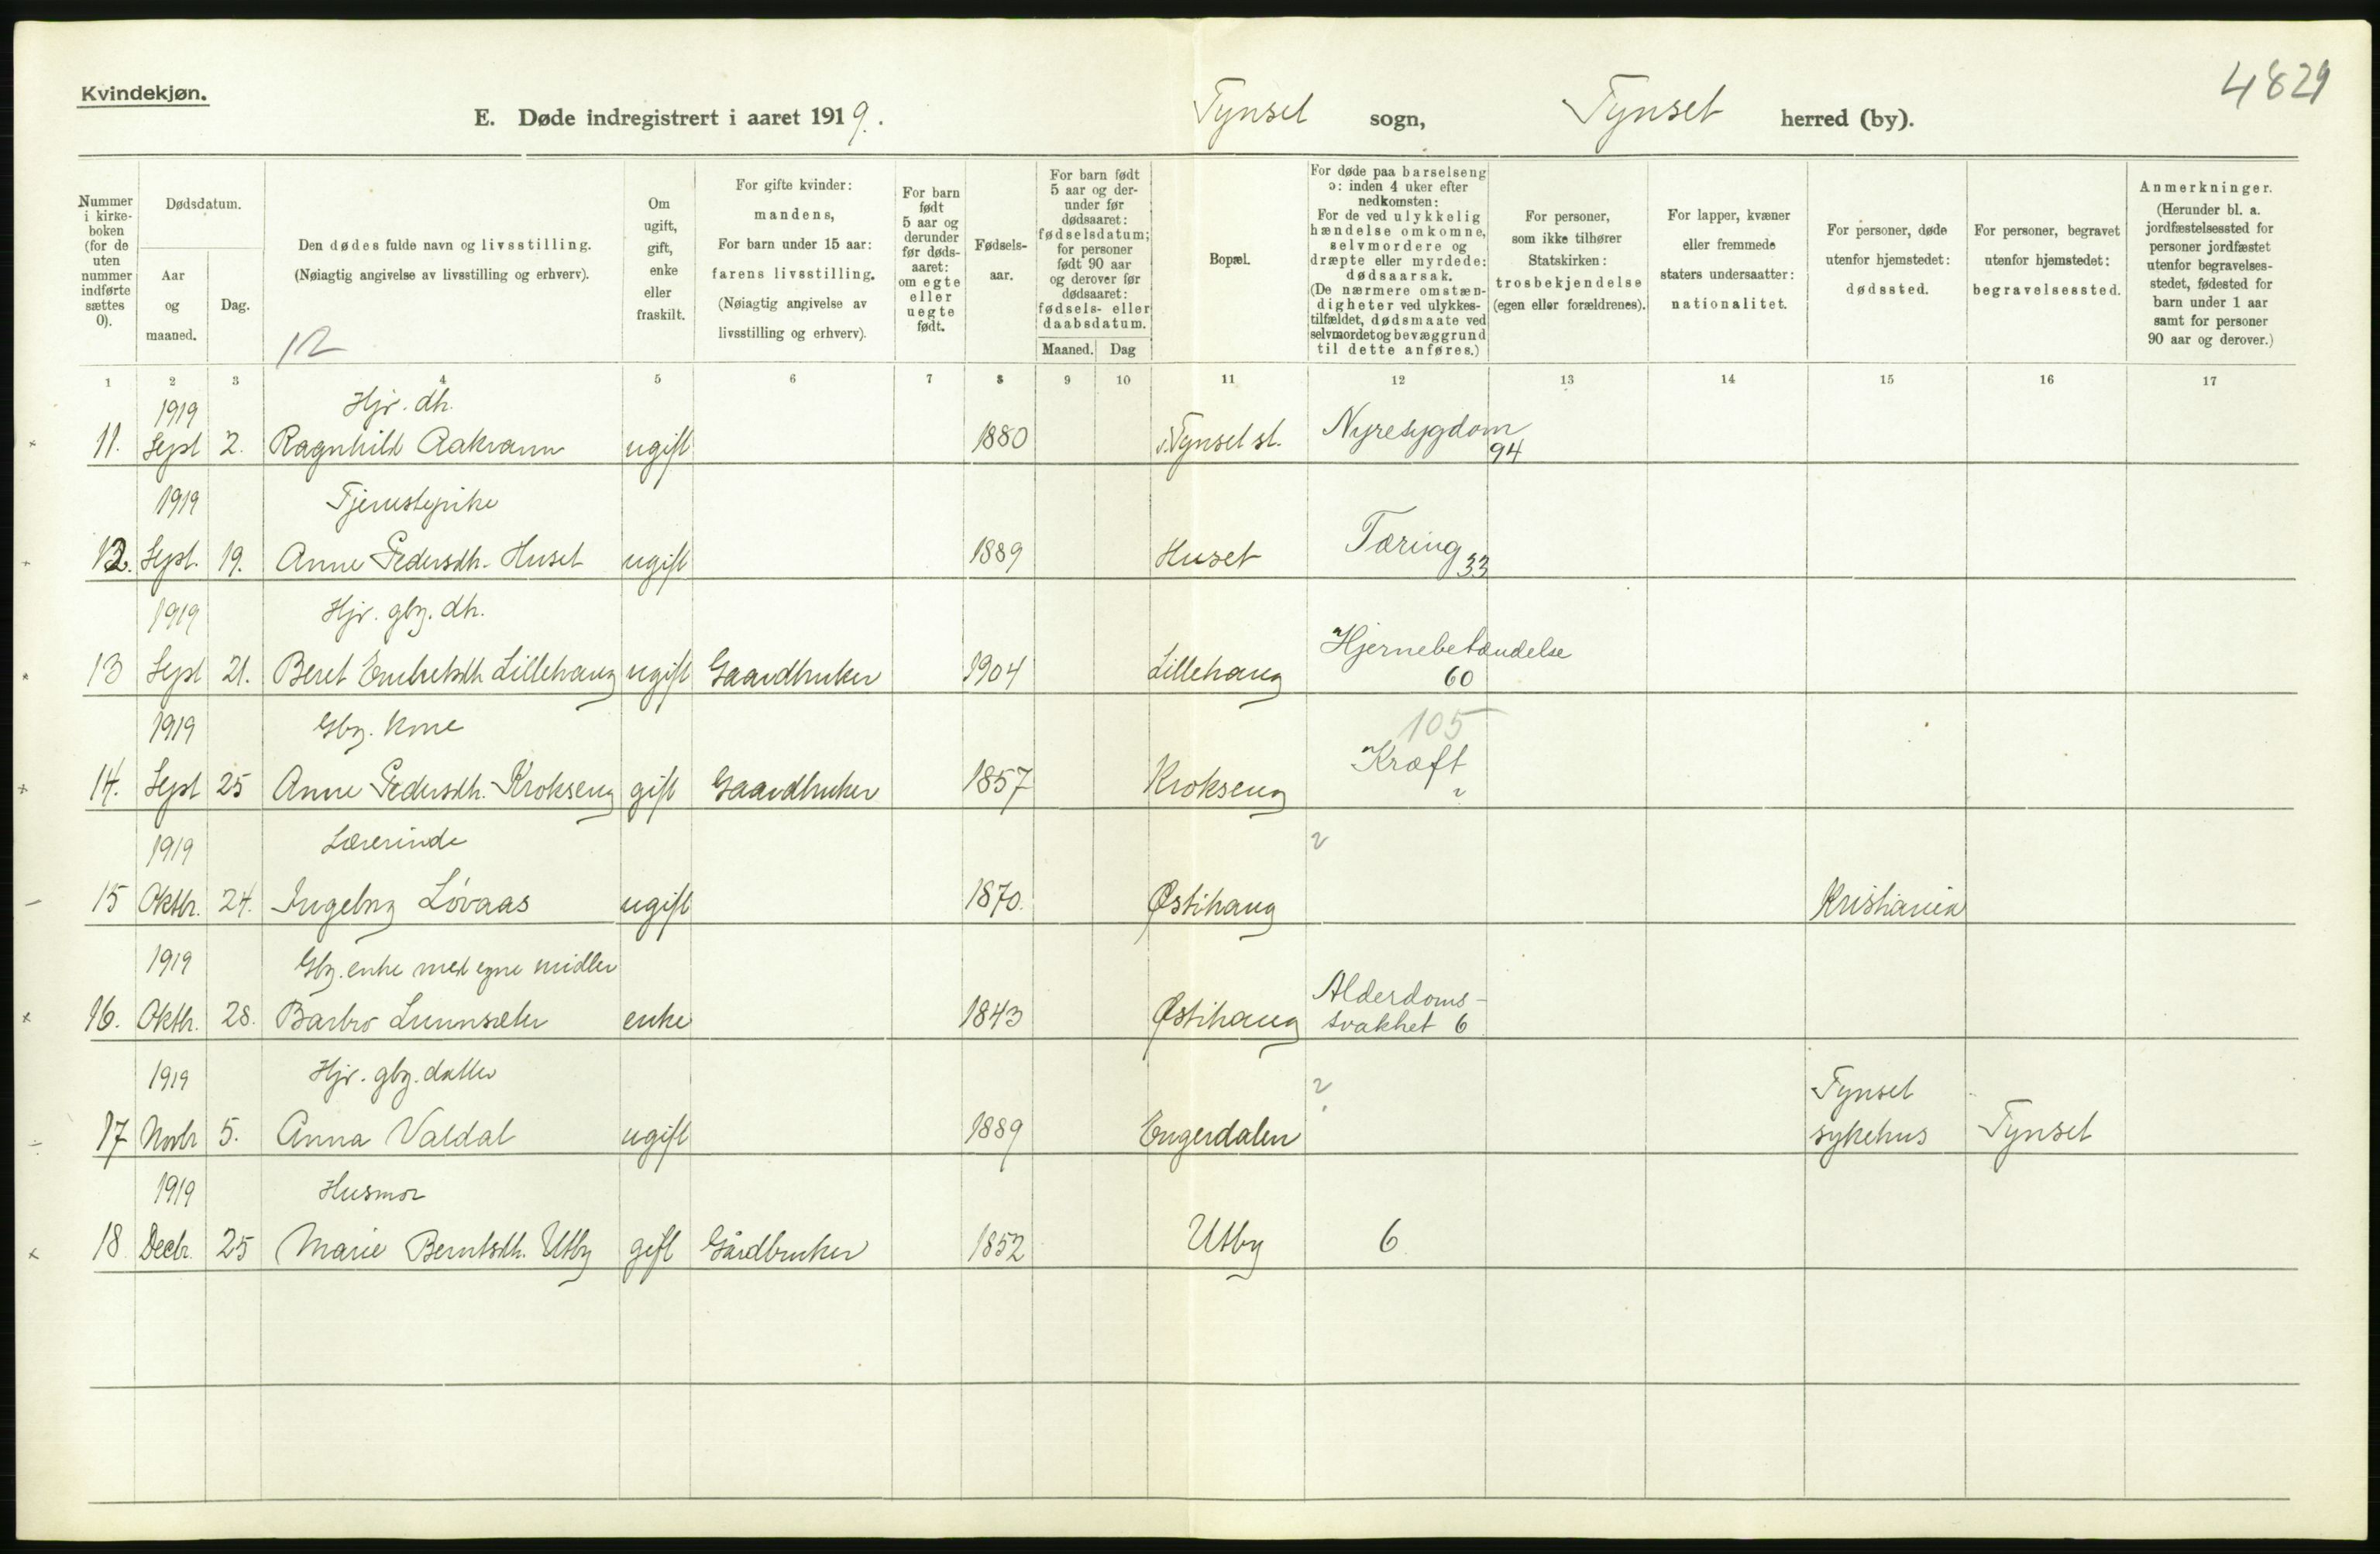 Kvindekjøn.
4829
E. Døde indregistrert i aaret 1919. Tynset sogn, Tynset herred (by).
Nummer i kirkeboken (for de uten nummer indførte sættes 0).
Dødsdatum.
Aar og maaned.
Dag.
Den dødes fulde navn og livsstilling. (Nøiagtig angivelse av livsstilling og erhverv).
12
Om ugift, gift, enke eller fraskilt.
For gifte kvinder: mandens, For barn under 15 aar: farens livsstilling. (Nøiagtig angivelse av livsstilling og erhverv).
For barn født 5 aar og derunder før dødsaaret: om egte eller uegte født.
Fødselsaar.
For barn født 5 aar og derunder før dødsaaret: fødselsdatum; for personer født 90 aar og derover før dødsaaret: fødsels- eller daabsdatum.
Maaned. Dag
Bopæl.
For døde paa barselseng ɔ: inden 4 uker efter nedkomsten: For de ved ulykkelig hændelse omkomne, selvmordere og dræpte eller myrdede: dødsaarsak. (De nærmere omstændigheter ved ulykkestilfældet, dødsmaate ved selvmordet og bevæggrund til dette anføres.)
For personer, som ikke tilhører Statskirken: trosbekjendelse (egen eller forældrenes).
For lapper, kvæner eller fremmede staters undersaatter: nationalitet.
For personer, døde utenfor hjemstedet: dødssted.
For personer, begravet utenfor hjemstedet: begravelsessted.
Anmerkninger. (Herunder bl. a. jordfæstelsessted for personer jordfæstet utenfor begravelsesstedet, fødested for barn under 1 aar samt for personer 90 aar og derover.)
1 2 3 4 5 6 7 8 9 10 11 12 13 14 15 16 17
1919 Hjr. dh.
11. Sept 2. Ragnhild Aakrann ugift 1880 Tynset st. Nyresygdom 94
1919 Tjenestepike
12. Sept. 19. Anne Pedersdh. Huset ugift 1889 Huset Tæring 33
1919 Hjr. gbr. dh.
13 Sept 21. Beret Embretsdh Lillehaug ugift Gaardbruker 1904 Lillehaug Hjernebetændelse 60
1919 Gbr. kone 105
14. Sept 25 Anne Pedersdh. Krokseng gift Gaardbruker 1857 Krokseng Kræft
1919 Lærerinde
15 Oktbr. 24. Ingeborg Løvaas ugift 1870. Østihaug Kristiania
1919 Gbr. enke med egne midler
16. Oktbr. 28. Barbro Lunnsæter enke 1843 Østihaug Alderdoms-svakhet 6
1919 Hjr. gbr. datter ?
17 Novbr 5. Anna Valdal ugift 1889 Engerdalen Tynset sykehus Tynset
1919 Husmor
18 Decbr. 25 Marie Berntsdh. Utby gift Gårdbruker 1852 Utby 6